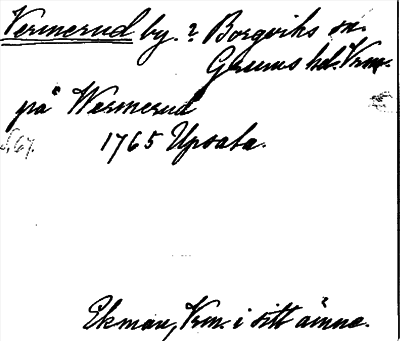 Vermerud by. ? Borgviks sn.
Grums hd. Vrm.
på Wermerud
1765 Upsala.
S. 67.
Ekman, Vrm. i sitt ämne.